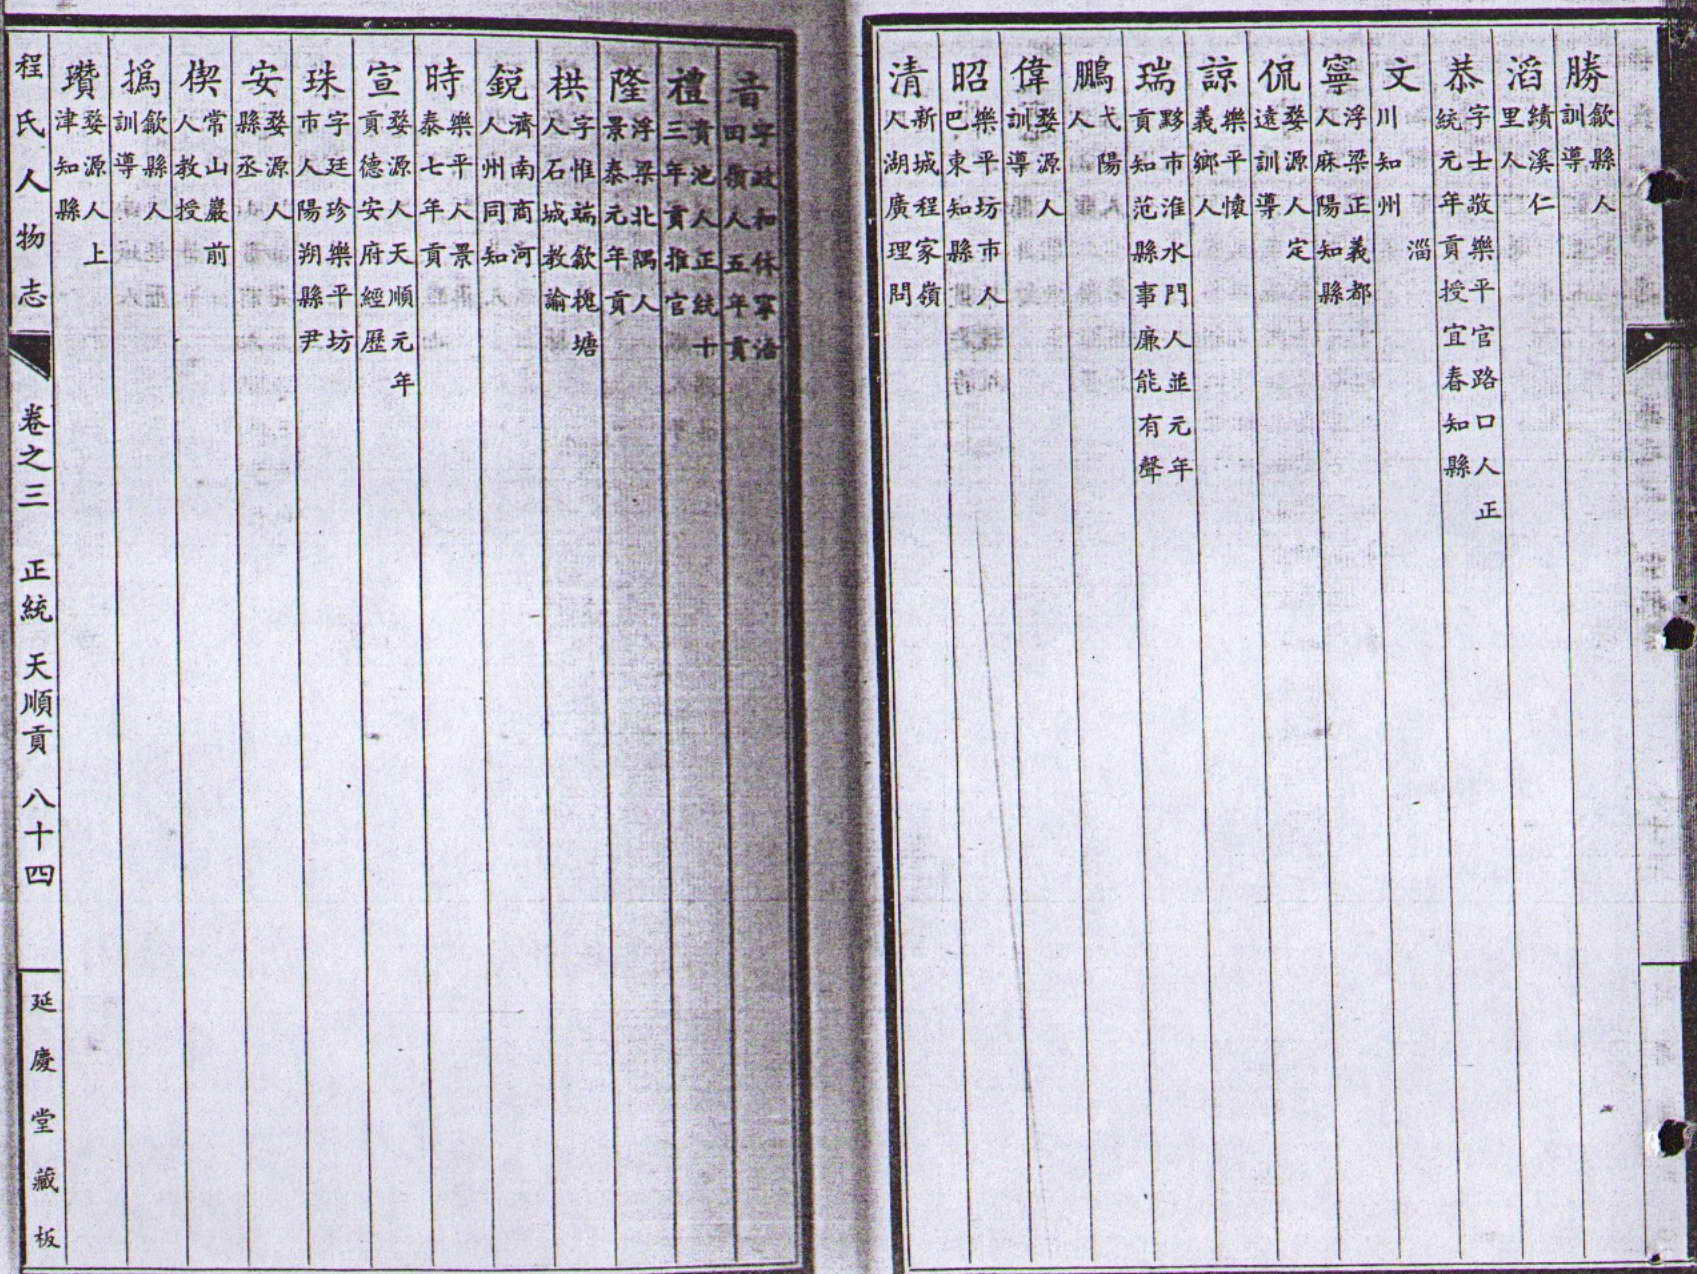 勝 歙縣人訓導
滔 績溪仁里人
恭 字士敬樂平官路口人正統元年貢授宜春知縣
文 淄川知州
寧 浮梁正義都人麻陽知縣
侃 婺源人定遠訓導
諒 樂平懷義鄉人
瑞 黟市淮水門人並元年貢知范縣事廉能有聲
鵬 弋陽人
偉 婺源人訓導
昭 樂平坊市人巴東知縣
清 新城程家嶺人湖廣理問
音 字政和休寧汊田嶺人五年貢
禮 貴池人正統十三年貢推官
隆 浮梁北隅人景泰元年貢
栱 字惟端歙槐塘人石城教諭
銳 濟南商河人州同知
時 樂平人景泰七年貢
宣 婺源人天順元年貢德安府經歷
珠 字廷珍樂平坊市人陽朔縣尹
安 婺源人縣丞
楔 常山巖前人教授
撝 歙縣人訓導
瓚 婺源人上津知縣
程氏人物志 卷之三 正統 天順貢 八十四 延慶堂藏板